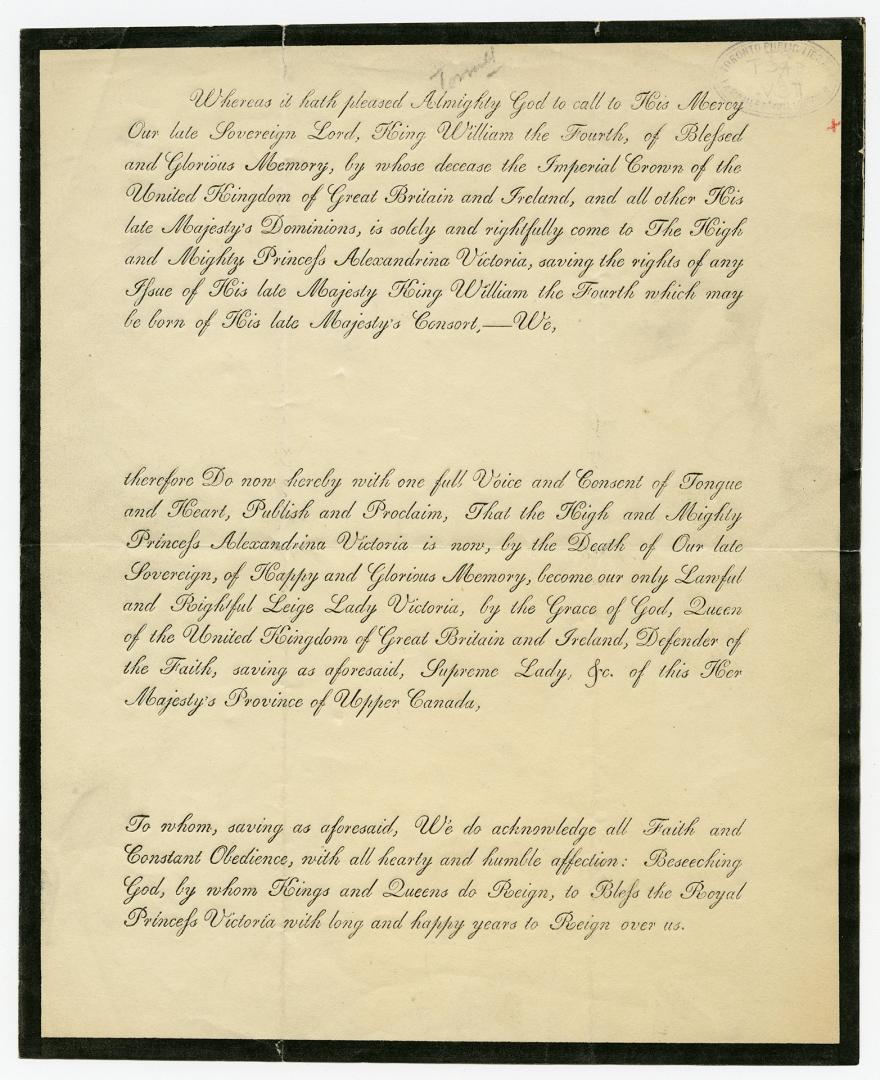 Whereas it hath pleased Almighty God to call to His Mercy
Our late Sovereign Lord, King William the Fourth, of Bleſsed
and Glorious Memory, by whose decease the Imperial Crown of the
United Kingdom of Great Britain and Ireland, and all other His
late Majesty's Dominions, is solely and rightfully come to The High
and Mighty Princeſs Alexandrina Victoria, saving the rights of any
Iſsue of His late Majesty King William the Fourth which may
be born of His late Majesty's Consort,—We,
therefore Do now hereby with one full Voice and Consent of Tongue
and Heart, Publish and Proclaim, That the High and Mighty
Princeſs Alexandrina Victoria is now, by the Death of Our late
Sovereign, of Happy and Glorious Memory, become our only Lawful
and Rightful Leige Lady Victoria, by the Grace of God, Queen
of the United Kingdom of Great Britain and Ireland, Defender of
the Faith, saving as aforesaid, Supreme Lady, &c. of this Her
Majesty's Province of Upper Canada,
To whom, saving as aforesaid, We do acknowledge all Faith and
Constant Obedience, with all hearty and humble affection: Beseeching
God, by whom Kings and Queens do Reign, to Bleſs the Royal
Princeſs Victoria with long and happy years to Reign over us.
TORONTO PUBLIC